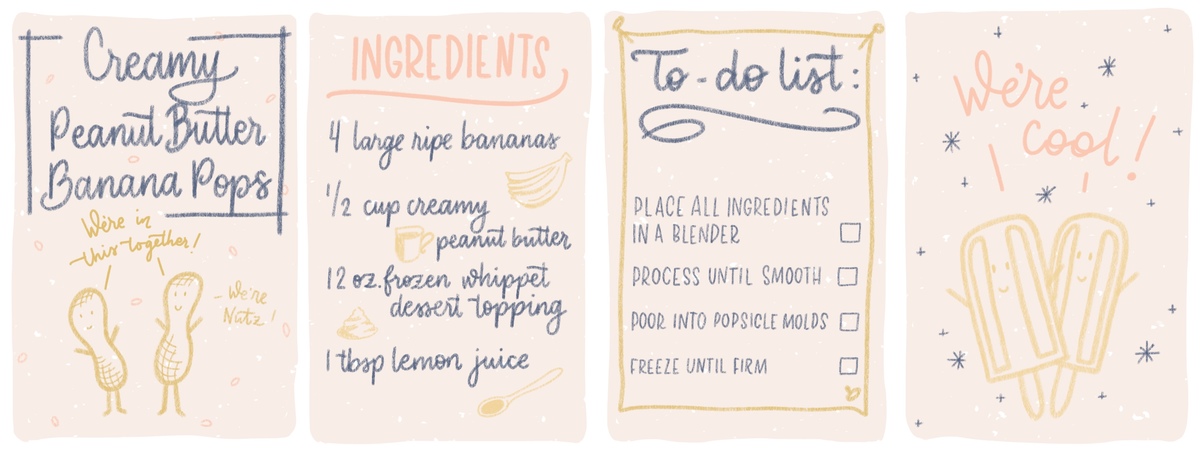 Creamy
Peanut Butter
Banana Pops
We're in
this together!
- We're
Nutz!
INGREDIENTS
4 large ripe bananas
1/2 cup creamy
peanut butter
12 oz. frozen whippet
dessert topping
1 tbsp lemon juice
To-do list:
PLACE ALL INGREDIENTS
IN A BLENDER
PROCESS UNTIL SMOOTH
POOR INTO POPSICLE MOLDS
FREEZE UNTIL FIRM
We're
cool!